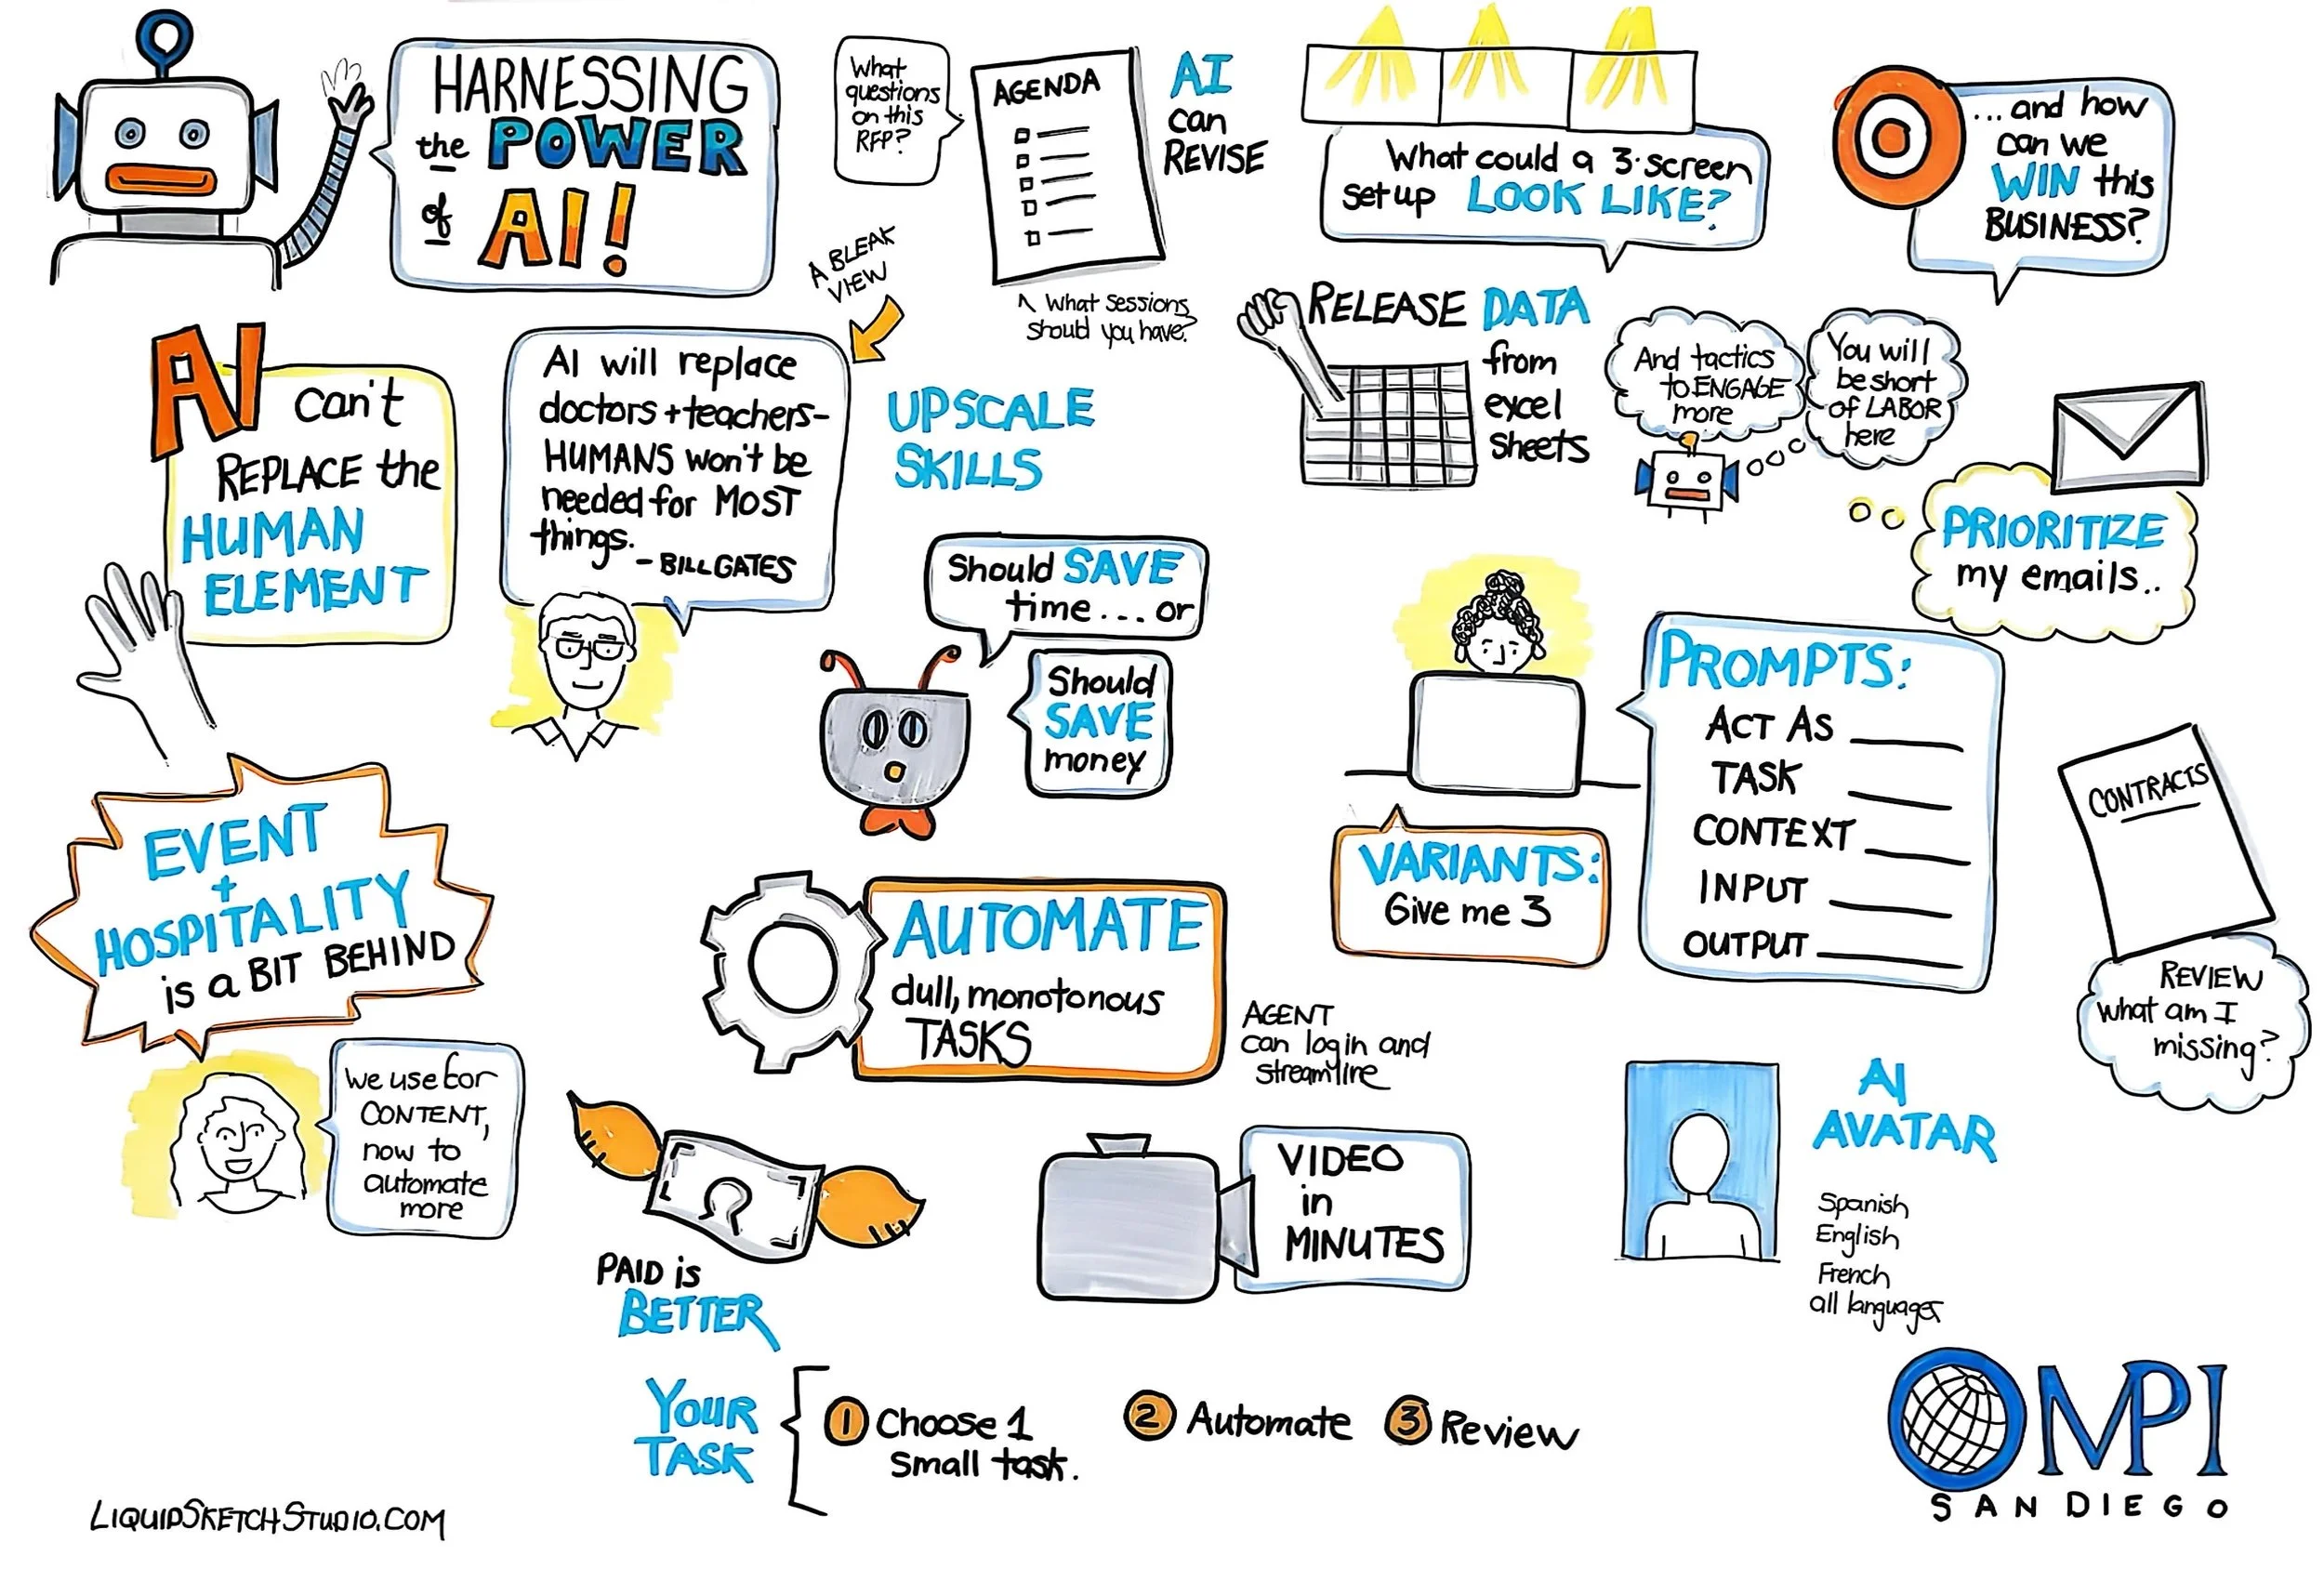 HARNESSING
the POWER
of AI!
What
questions
on this
RFP?
AGENDA
AI
can
REVISE
^ What sessions
should you have?
What could a 3-screen
set up LOOK LIKE?
... and how
can we
WIN this
BUSINESS?
AI
can't
REPLACE the
HUMAN
ELEMENT
A BLEAK
VIEW
AI will replace
doctors + teachers-
HUMANS won't be
needed for MOST
things.
- BILL GATES
UPSCALE
SKILLS
RELEASE DATA
from
excel
sheets
And tactics
to ENGAGE
more
You will
be short
of LABOR
here
PRIORITIZE
my emails..
Should SAVE
time... or
Should
SAVE
money
PROMPTS:
ACT AS ____
TASK ____
CONTEXT ____
INPUT ____
OUTPUT ____
VARIANTS:
Give me 3
CONTRACTS
REVIEW
what am I
missing?
EVENT
+
HOSPITALITY
is a BIT BEHIND
we use for
CONTENT,
now to
automate
more
AUTOMATE
dull, monotonous
TASKS
AGENT
can log in and
streamline
PAID is
BETTER
VIDEO
in
MINUTES
AI
AVATAR
Spanish
English
French
all languages
YOUR
TASK
1 Choose 1
Small task.
2 Automate
3 Review
LIQUIDSKETCHSTUDIO.COM
MPI
SAN DIEGO